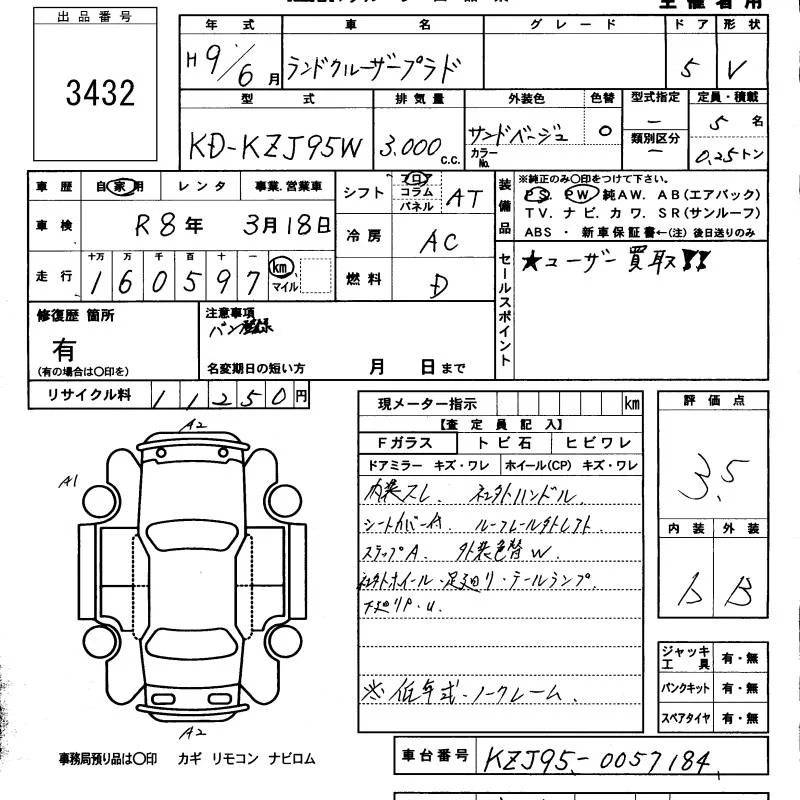 出品番号
3432
年式 車名 グレード ドア 形状
H9/6月 ランドクルーザープラド 5 V
型式 排気量 外装色 色替 型式指定 定員・積載
KD-KZJ95W 3,000 C.C. サンドベージュ 〇 ー 5名
カラーNo. 類別区分 ー 0.25トン
車歴 自家用 レンタ 事業.営業車
シフト フロア コラム パネル AT
装備品
※純正のみ〇印をつけて下さい。
PS. PW. 純AW. AB(エアバック)
TV. ナビ. カワ. SR(サンルーフ)
ABS ・ 新車保証書←(注) 後日送りのみ
車検 R8年 3月18日
冷房 AC
走行 十万 万 千 百 十 一
160597 km マイル
燃料 D
セールスポイント
★ユーザー買取!!
修復歴 箇所
有
(有の場合は〇印を)
注意事項
バン登録
名変期日の短い方 月 日まで
リサイクル料 11250円
現メーター指示 km
【査定員記入】
Fガラス トビ石 ヒビワレ
ドアミラー キズ・ワレ ホイール(CP) キズ・ワレ
内装スレ. 社外ハンドル.
シートカバー付. ルーフレール外レスト.
ステップA. 外装色替W.
社外ホイール・足廻り・テールランプ.
下廻りP・U.
※低年式・ノークレーム.
評価点
3.5
内装 外装
b B
ジャッキ 工具 有・無
パンクキット 有・無
スペアタイヤ 有・無
A2
A1
A2
事務局預り品は〇印 カギ リモコン ナビロム
車台番号 KZJ95-0057184